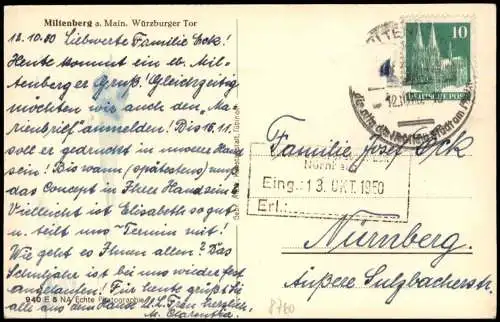 Miltenberg a. Main. Würzburger Tor
12.10.50 Liebwerte Familie Eck!
Heute kommt ein lb. Mil-
tenberger Gruß! Gleichzeitig
möchten wir auch den „Ma-
rienbrief" anmelden! Bis 18.11.
soll er gedruckt in unserer Hand
sein! Bis wann (spätestens) muß
das Concept in Ihrer Hand sein?
Vielleicht ist Elisabeth so gut
u. teilt uns Termin mit!
Wie geht es Ihnen allen? Das
Schuljahr ist bei uns wieder fest
angelaufen! Für heute grüßt Sie
alle aus dankb. u. l. Treu herzlich,
M.
940 E 8 NA Echte Photographie
10
DEUTSCHE POST
Familie Josef Eck
Nürnberg
Eing.: 13. OKT. 1950
Erl.:
Nürnberg.
Äußere Sulzbacherstr.
8760